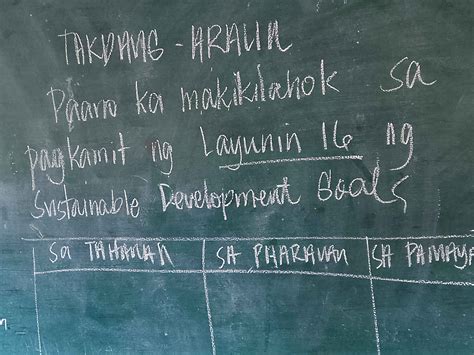 TAKDANG-ARALIN
Paano ka makikilahok sa
pagkamit ng Layunin 16 ng
Sustainable Development Goals
sa TAHANAN SA PAARALAN SA PAMAYA